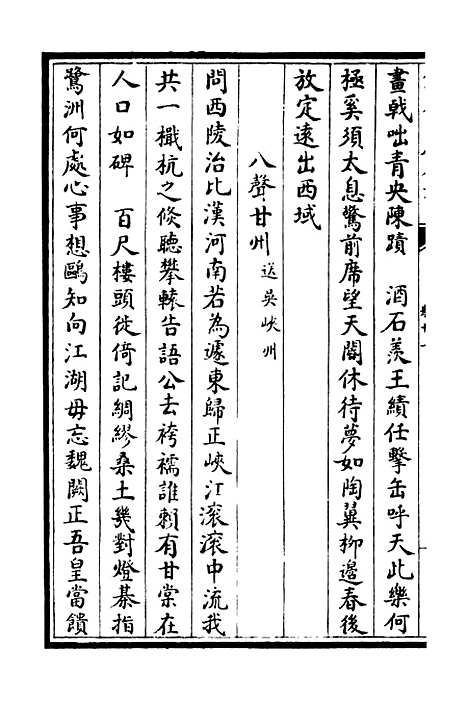 畫戟咄青央陳蹟　酒石羨王績任擊缶呼天此樂何
極奚須太息驚前席望天閽休待夢如陶翼柳邊春後
放定遠出西域
八聲甘州 送吳峽州
問西陵治比漢河南若為遽東歸正峽江滚滚中流我
共一檝杭之倐聽攀轅告語公去袴襦誰賴有甘棠在
人口如碑　百尺樓頭徙倚記綢繆桑土幾對燈棊指
鷺洲何處心事想鷗知向江湖毋忘魏闕正吾皇當饋